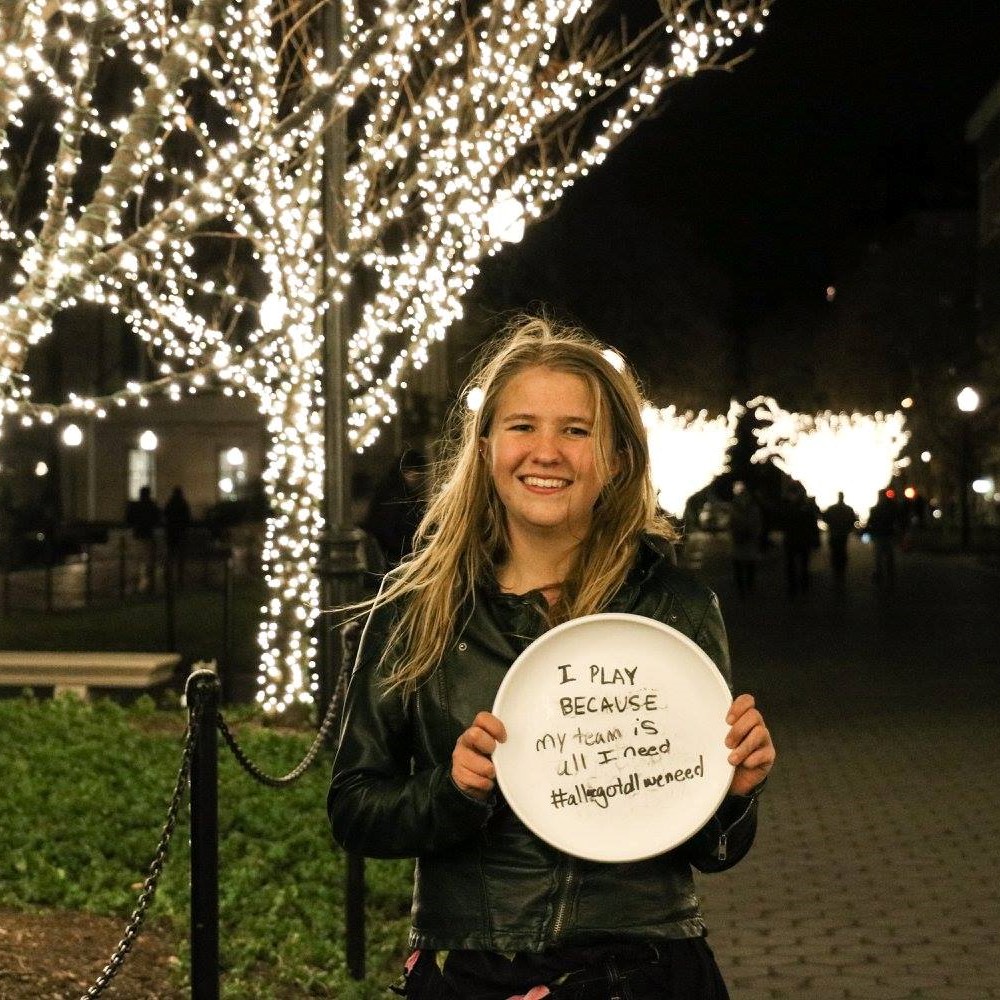 I PLAY
BECAUSE
my team is
all I need
#allwegotallweneed